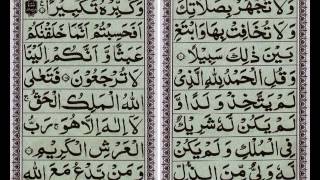 وَلَا تَجْهَرْ بِصَلَاتِكَ
وَلَا تُخَافِتْ بِهَا وَابْتَغِ
بَيْنَ ذٰلِكَ سَبِيْلًا ۝
وَ قُلِ الْحَمْدُ لِلّٰهِ الَّذِیْ
لَمْ يَتَّخِذْ وَلَدًا وَّ
لَمْ يَكُنْ لَّهٗ شَرِيْكٌ
فِی الْمُلْكِ وَلَمْ يَكُنْ
لَّهٗ وَلِیٌّ مِّنَ الذُّلِّ
وَكَبِّرْهُ تَكْبِيْرًا ۝
اَفَحَسِبْتُمْ اَنَّمَا خَلَقْنٰكُمْ
عَبَثًا وَّ اَنَّكُمْ اِلَيْنَا
لَا تُرْجَعُوْنَ ۝ فَتَعٰلَی
اللّٰهُ الْمَلِكُ الْحَقُّ ۚ
لَآ اِلٰهَ اِلَّا هُوَ ۚ رَبُّ
الْعَرْشِ الْكَرِيْمِ ۝
وَ مَنْ يَّدْعُ مَعَ اللّٰهِ